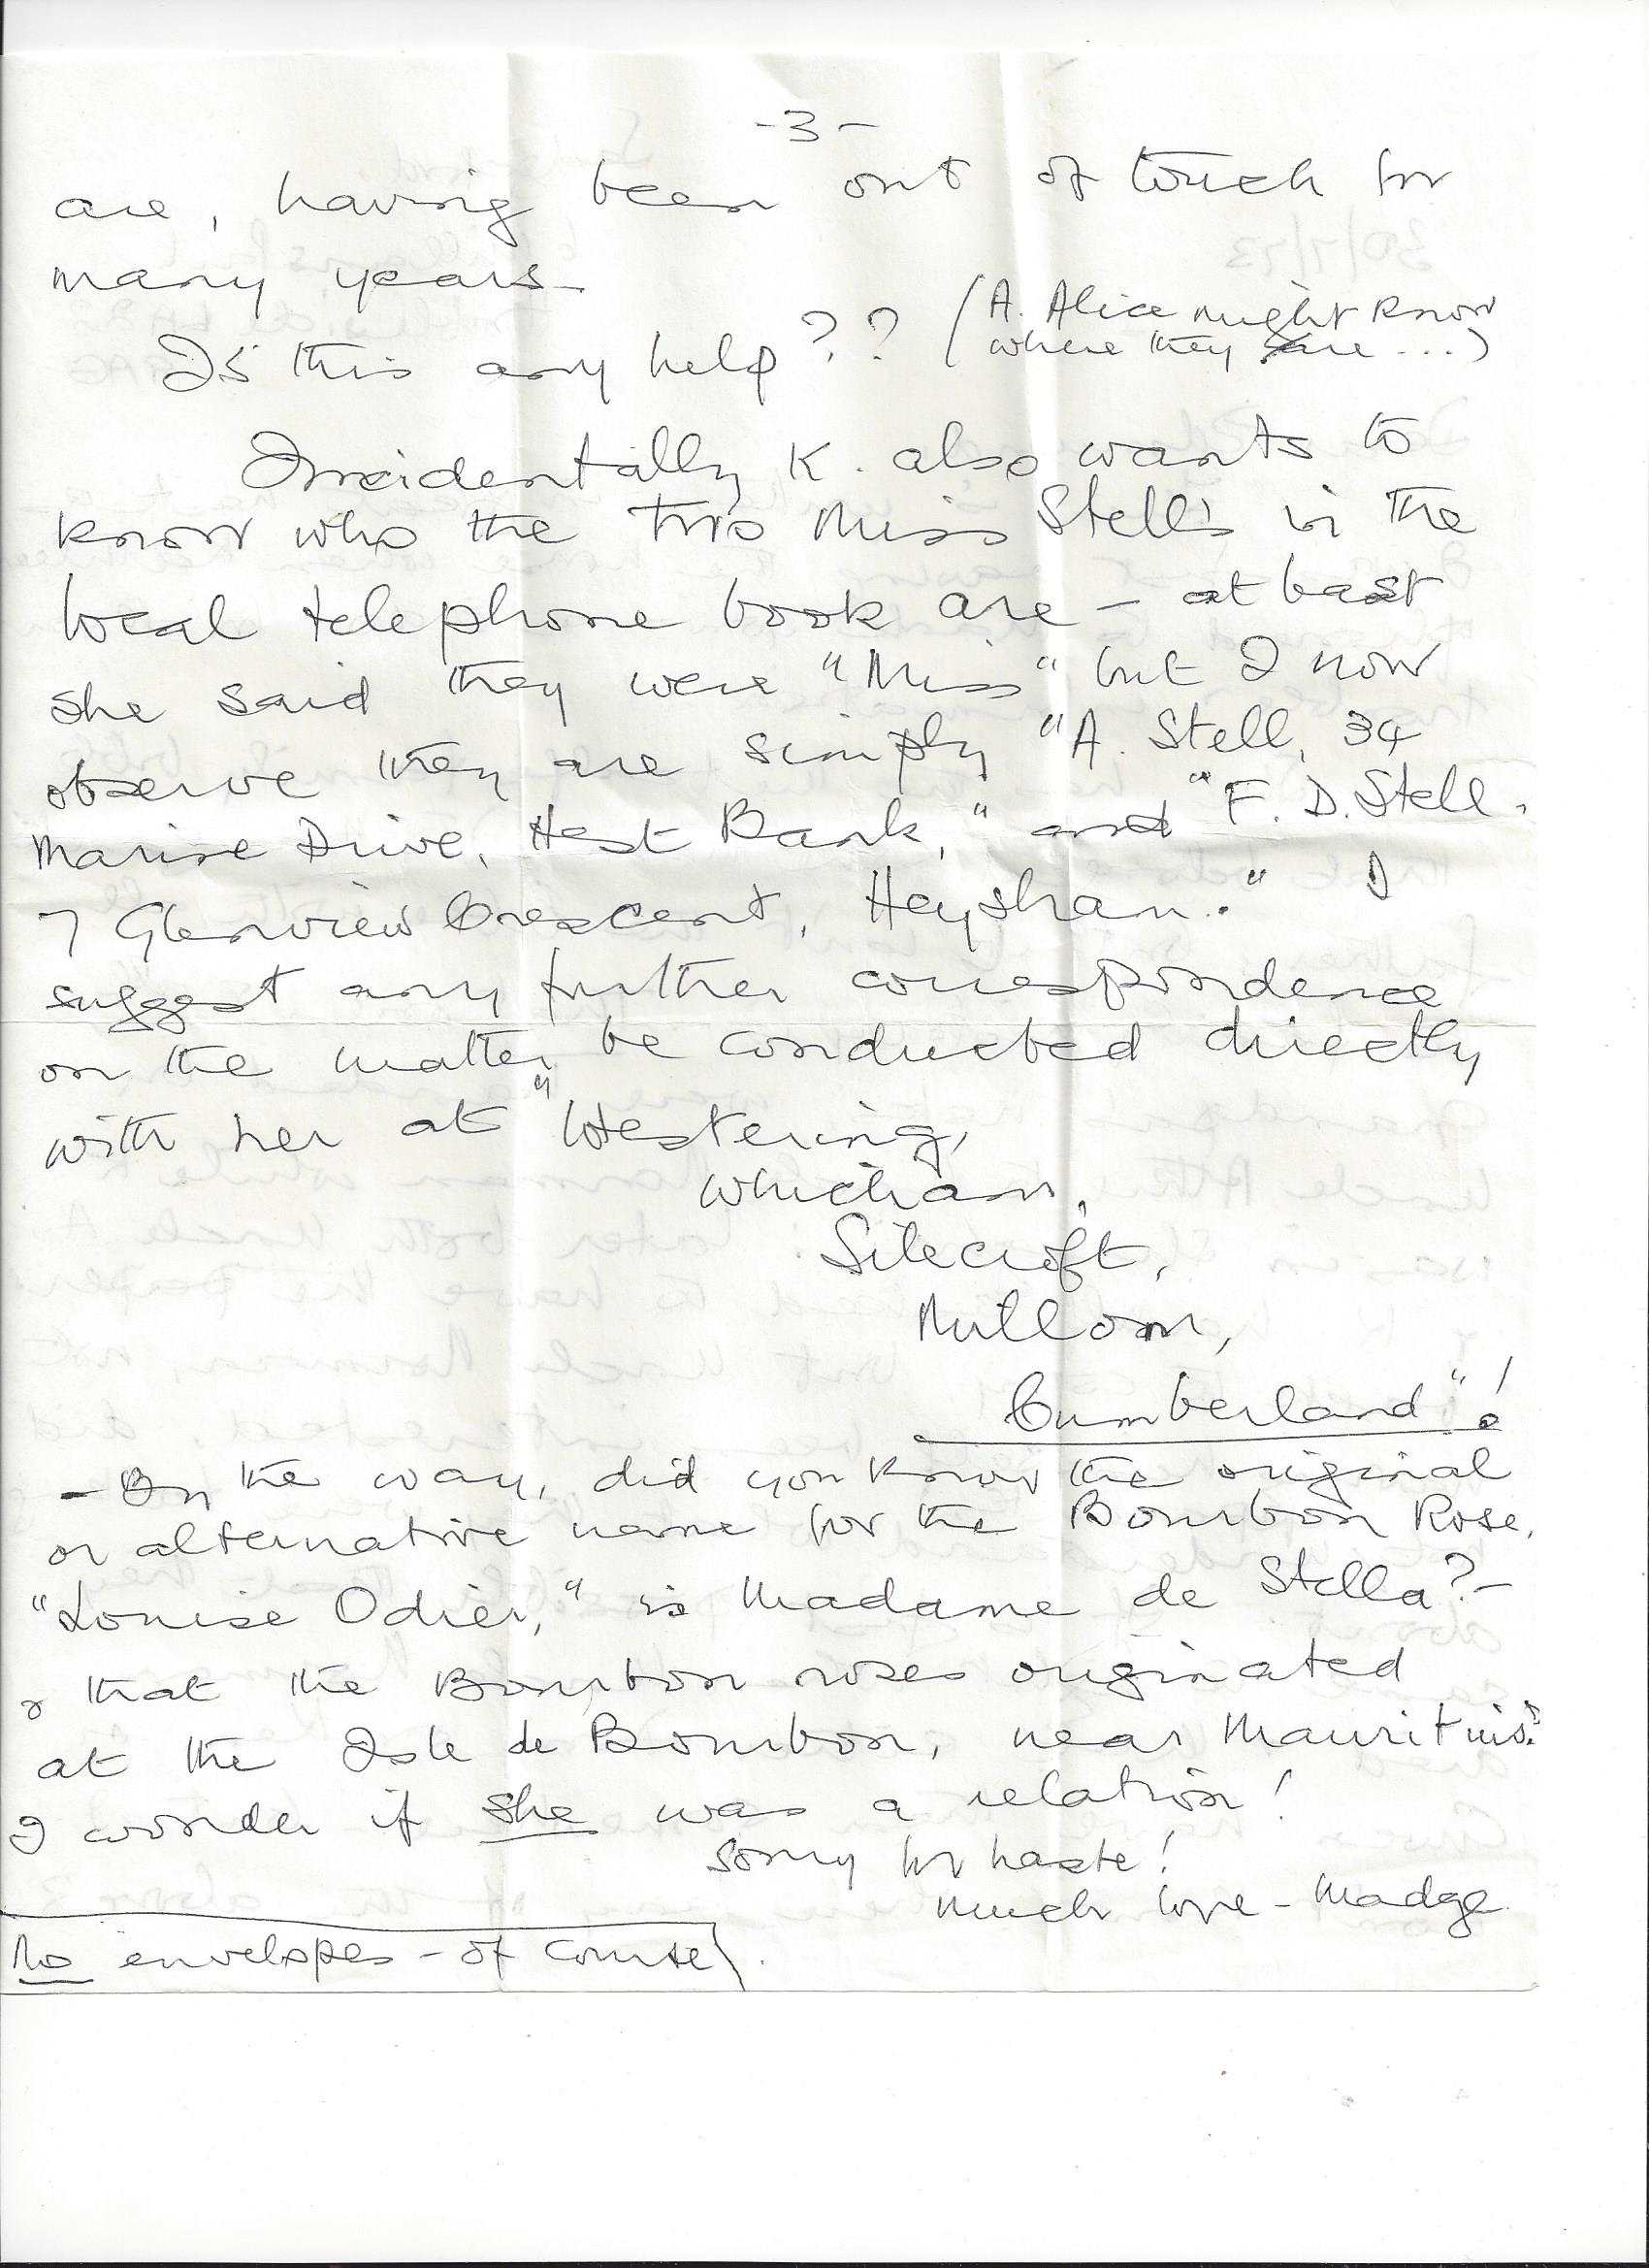 -3-
are, having been out of touch for
many years.
Is this any help?? (A. Alice might know
where they are...)
Incidentally K. also wants to
know who the two Miss Stells in the
local telephone book are - at least
she said they were "Miss" but I now
observe they are simply "A. Stell, 34
Marine Drive, Hest Bank," and "F. D. Stell.
7 Glenview Crescent, Heysham." I
suggest any further correspondence
on the matter be conducted directly
with her at "Westering,
Whicham,
Silecroft,
Millom,
Cumberland"!
- By the way, did you know the original
or alternative name for the Bourbon Rose,
"Louise Odier," is Madame de Stella? -
& that the Bourbon roses originated
at the Isle de Bourbon, near Mauritius?
I wonder if she was a relation!
Sorry for haste!
Much love - Madge
No envelopes - of course